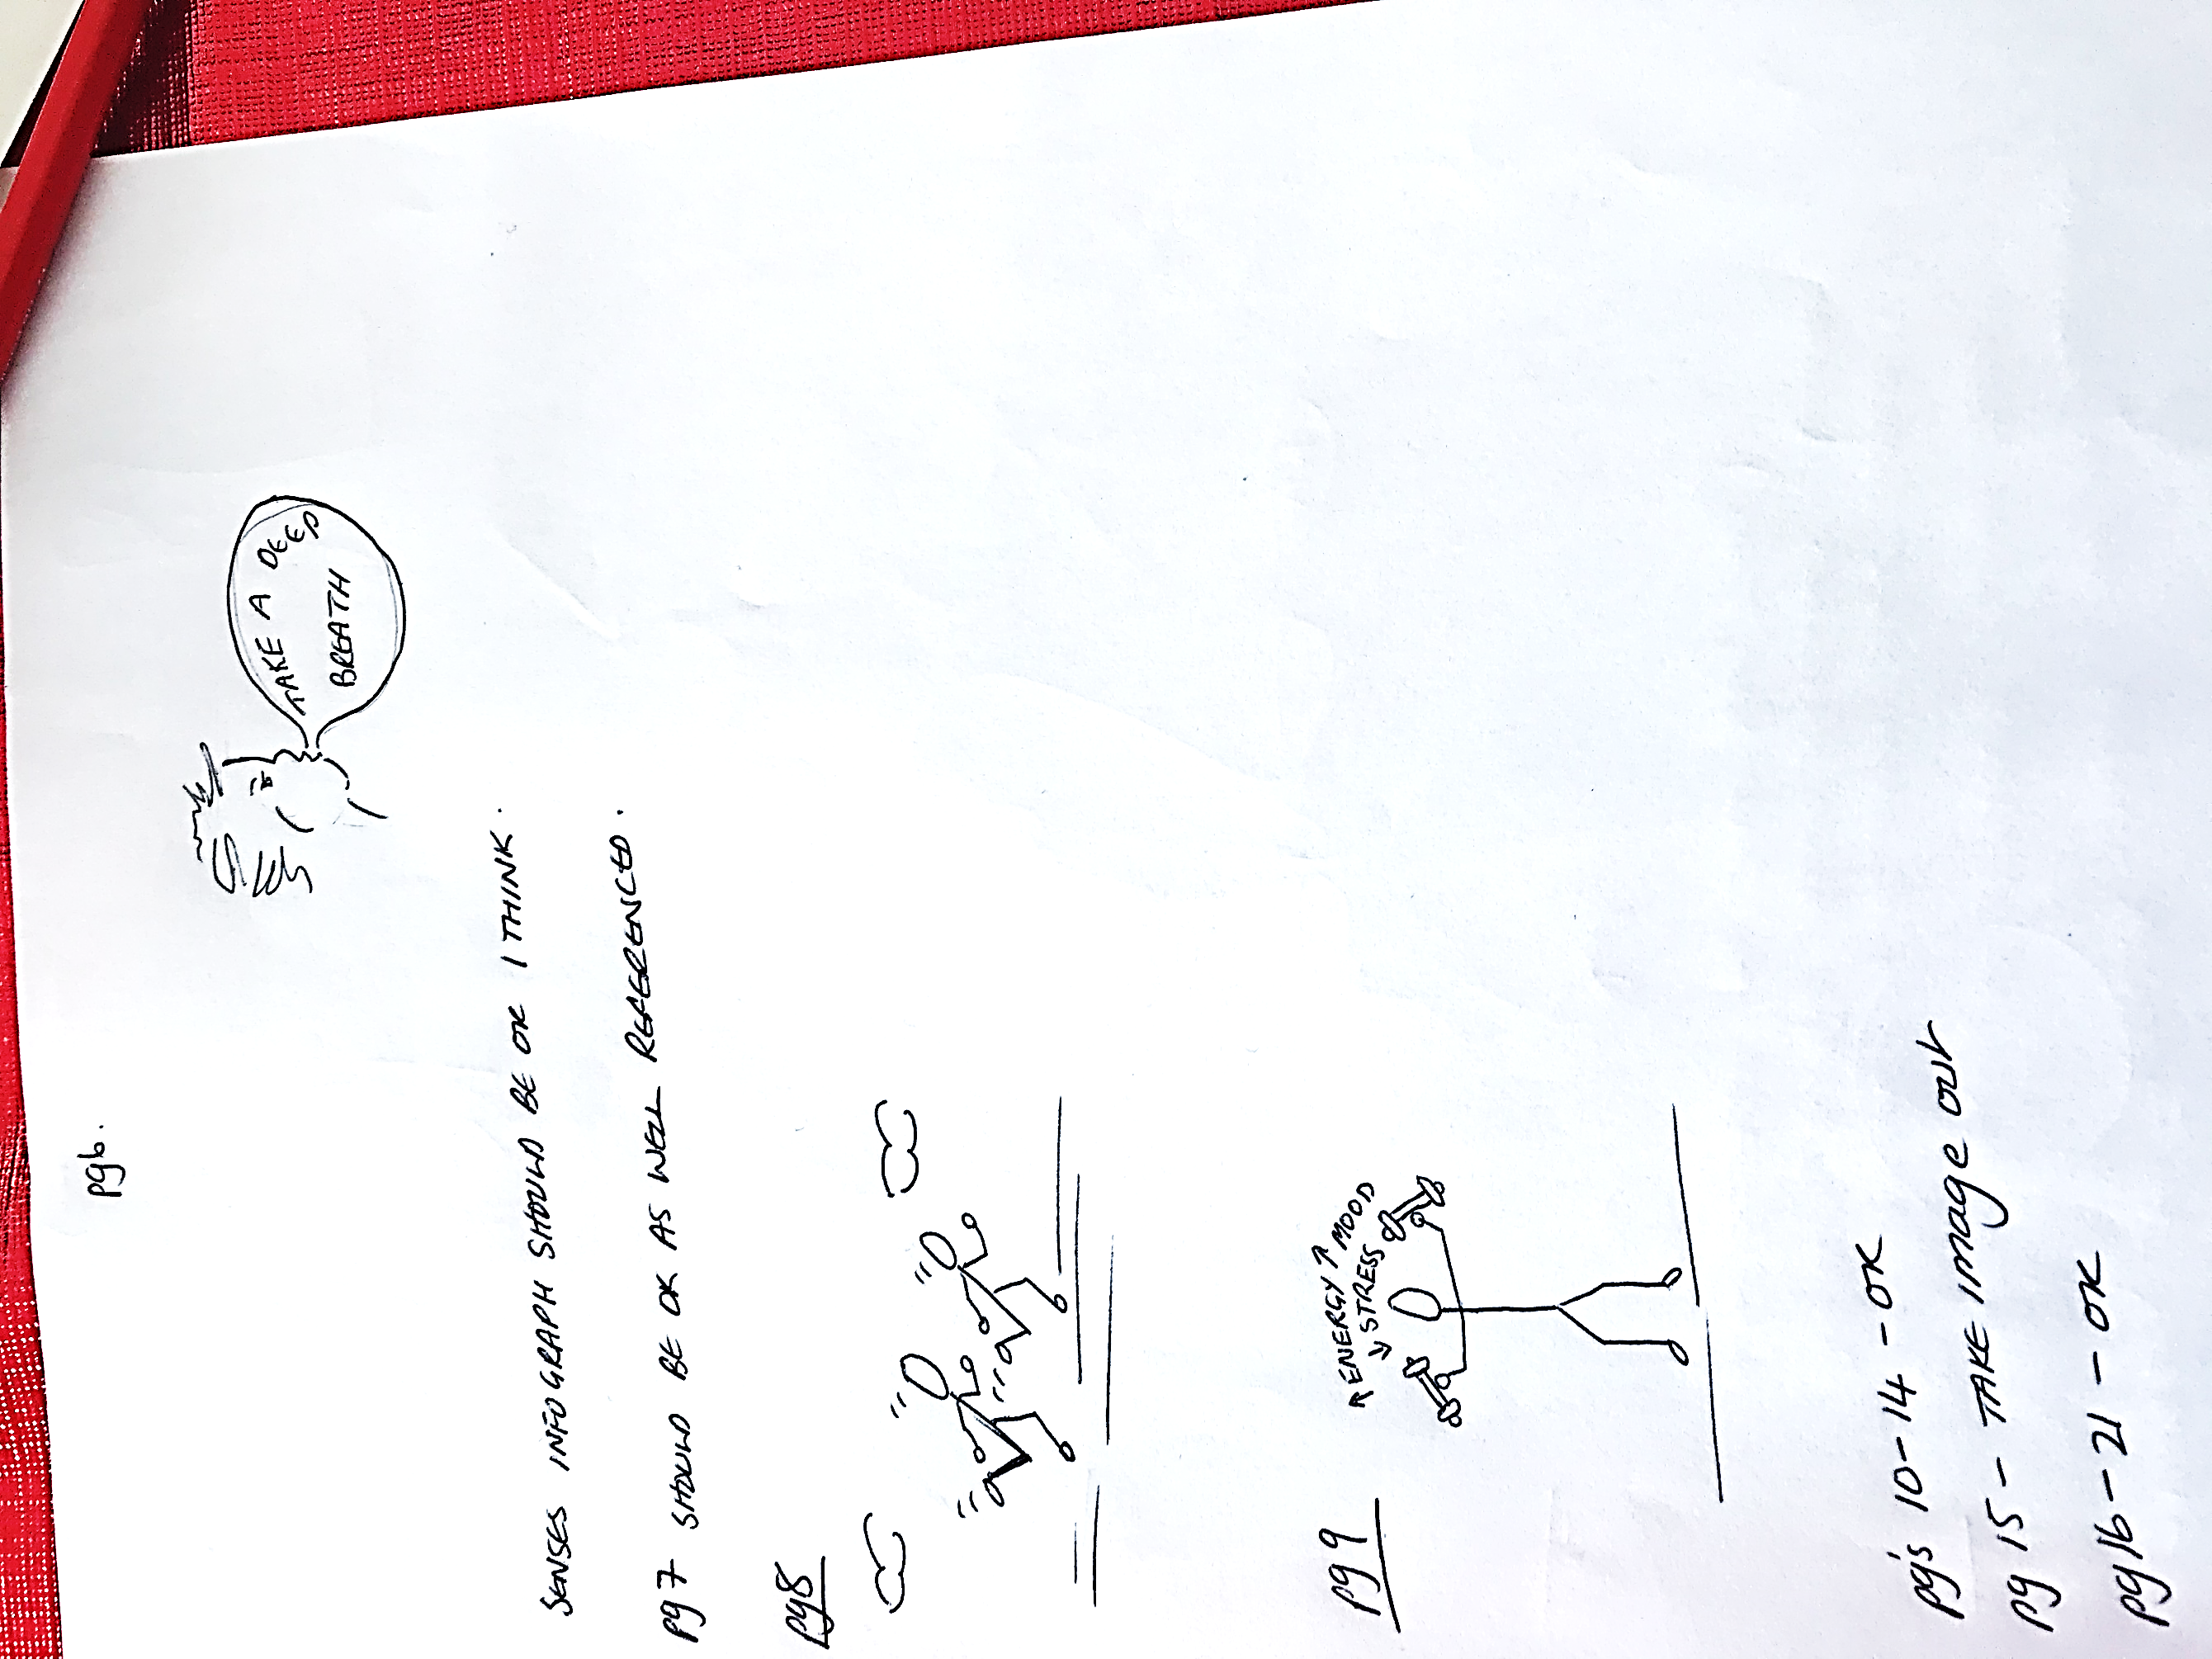 pg6.
TAKE A DEEP
BREATH
SENSES INFOGRAPH SHOULD BE OK I THINK.
pg 7 SHOULD BE OK AS WELL REFERENCED.
pg8
pg 9
↑ ENERGY ↑ MOOD
↓ STRESS
pg's 10-14 - OK
pg 15 - TAKE image out
pg 16 - 21 - OK